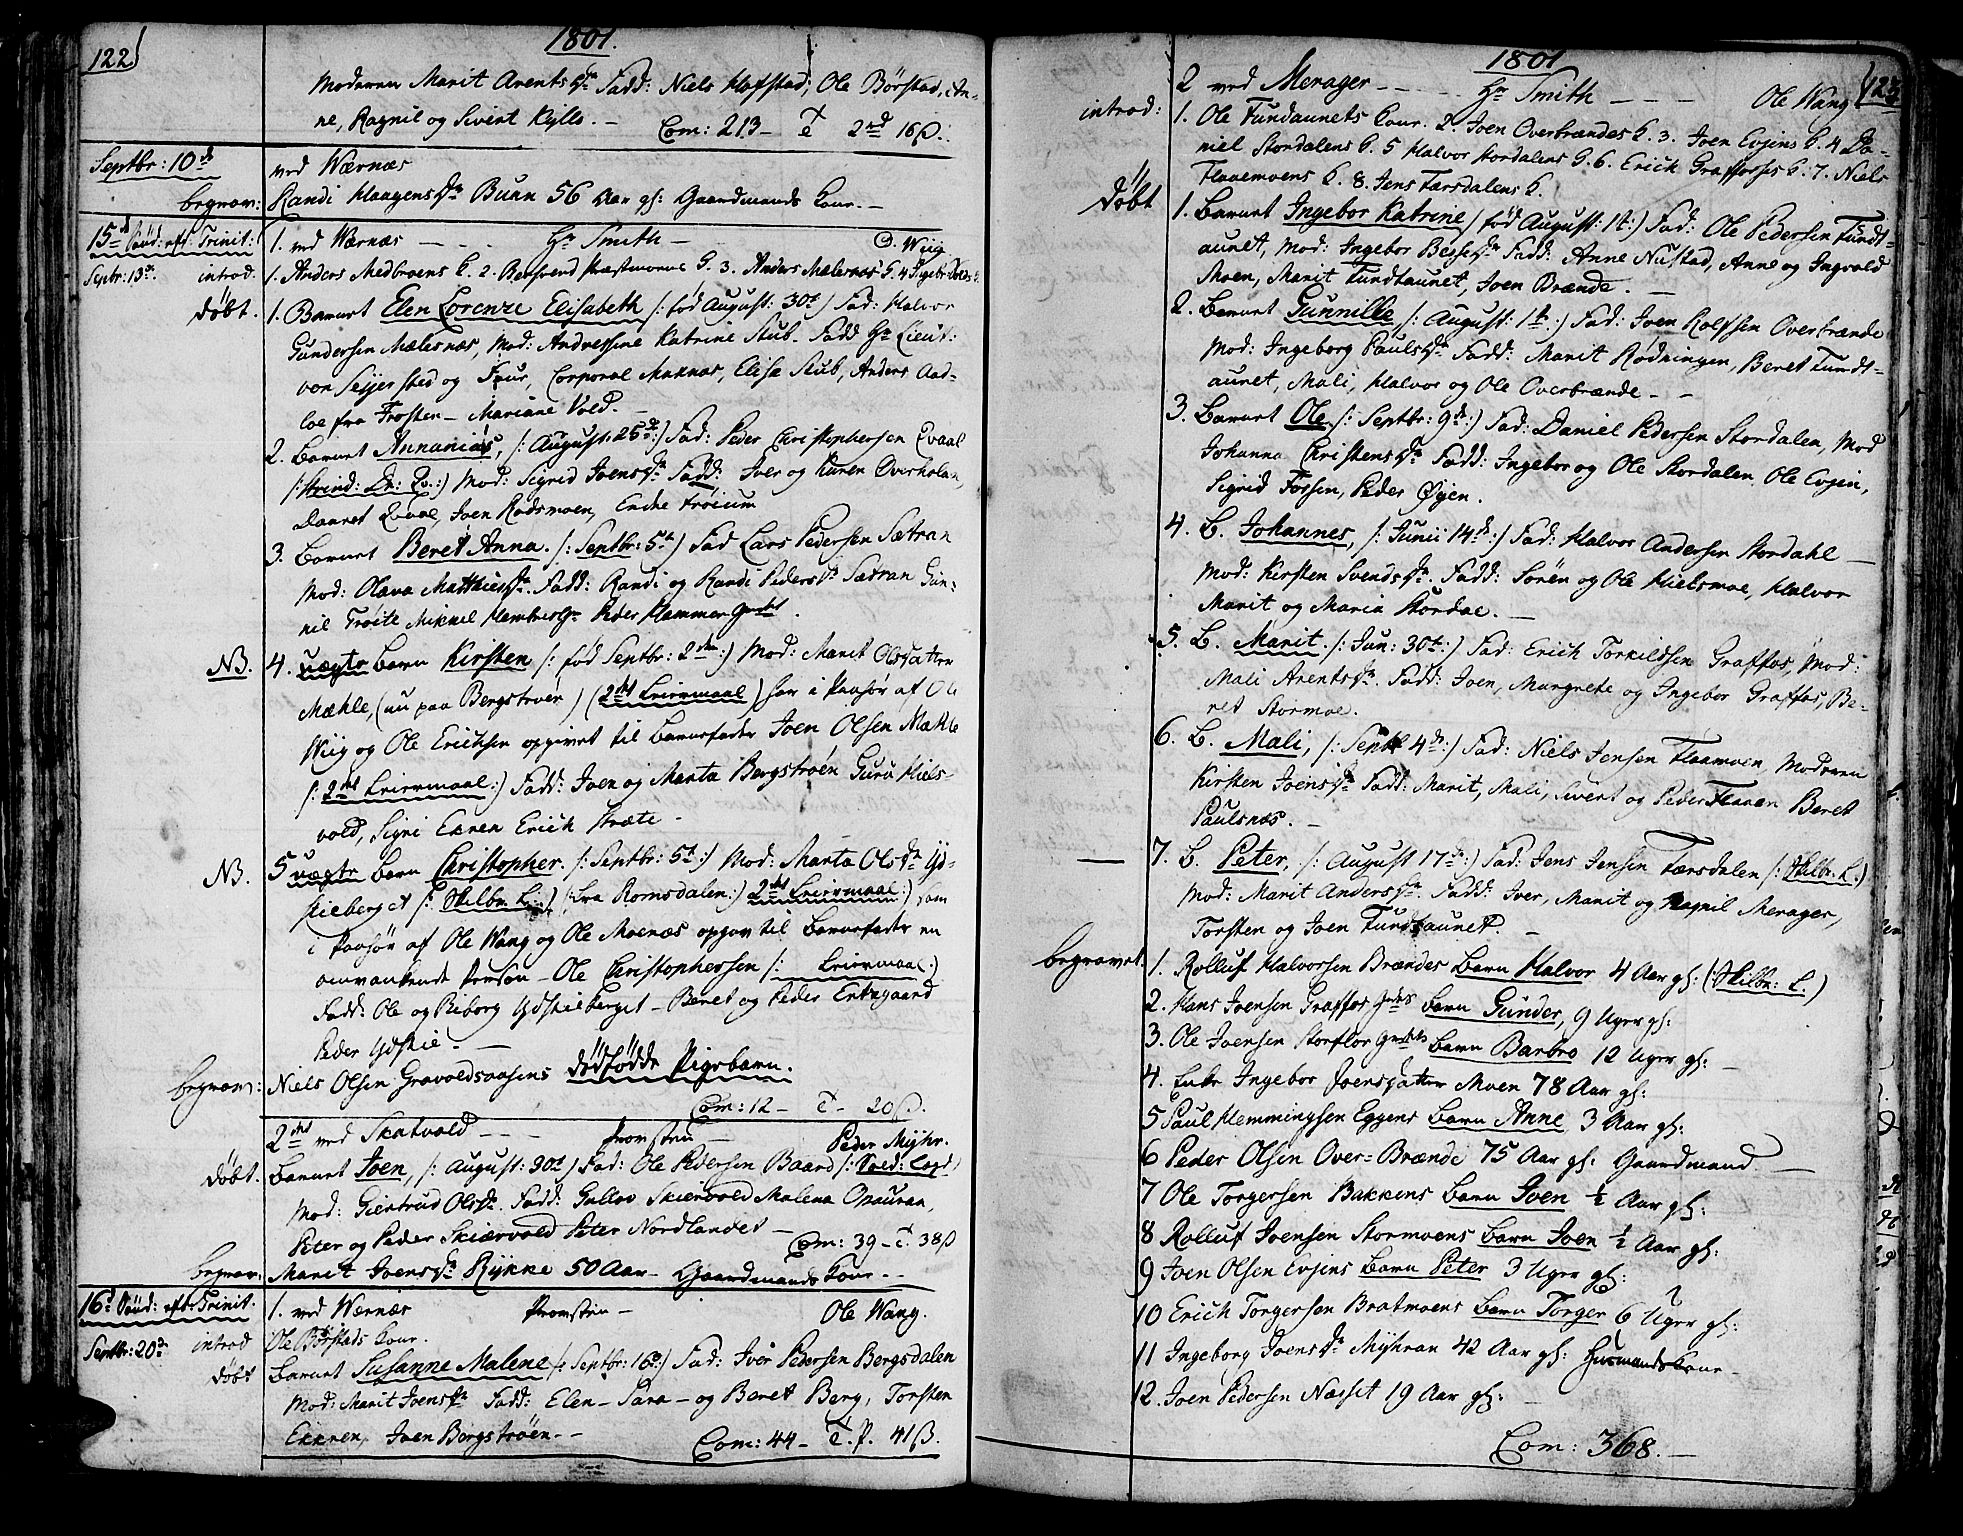 122
1801.
Moderen Marit Arents Dr Fadd: Niels Hofstad, Ole Börstad, An-
ne, Ragnil og Sivert Kyllo. — Com: 213 — T 2 rd 16 ß.
Septbr: 10de
ved Wærnæs
begrav: Randi Haagens Dr Buan 56 Aar gl: Gaardmands Kone. —
15de Sønd: eft: Trinit: 1. ved Wærnæs — Hr Smith — O: Wiig
Septbr: 13de introd. 1. Anders Medbroens K. 2. Bersvend Præstmoens K. 3. Anders Mælesnæs K. 4
døbt. 1. Barnet Elen Lorenze Elisabeth /: fød August: 30t :/ Fad: Halvor
Gundersen Mælesnæs, Mod: Andressine Katrine Stub. Fadd Hr Lieut:
von Sejersted og Frue, Corporal Maknas, Elise Stub, Anders Aad-
loe fra Frosten — Mariane Vold. —
2. Barnet Annanias, /: August: 25de :/ Fad: Peder Christophersen Qvaal
/: Strind: Dr: Qv: :/ Mod: Sigrid Joens Dr Fadd: Iver og Karen Overholan,
Daaret Qvaal, Joen Rodsmoen, Endre Trøium
3. Barnet Beret Anna. /: Septbr: 5te :/ Fad Lars Pedersen Sætran
Mod: Olava Matthies Dr. Fadd: Randi og Randi Peders Dr Sætran Gun-
nil Trøite Mikkel Hembres Gr Peder Hammer Gndst.
NB. 4. uægte Barn Kirsten /: fød Septbr: 2den :/ Mod: Marit Olsdatter
Mæhle, (nu paa Bergstroen) (2det Leiermaal) har i Paahør af Ole
Wiig og Ole Erichsen opgivet til Barnefader Joen Olsen Mæhle
/: 2det Leiermaal :/ Fadd: Joen og Marta Bergstroen Guru Hiels-
vold, Sigri Ekren Erich Stræte —
NB. 5 uægte Barn Christopher. /: Septbr: 5t :/ Mod: Marta Ols Dr Yd-
stieberget /: Skilbr: L: :/ (: fra Romsdalen :) 2det Leiermaal :/ som
i Paahør af Ole Wang og Ole Moenæs opgav til Barnefader en
omvankende Person — Ole Christophersen /: Leiermaal :/
Fadd: Ole og Riborg Ydstieberget — Beret og Peder Enkegaard
Peder Ydstie. —
begrav: Niels Olsen Gravoldsaasens dødfødde Pigebarn.
Com: 12 — T — 20 ß.
2det ved Skatvold — Provsten — Peder Myhr.
døbt. Barnet Joen, /: August: 30t :/ Fad: Ole Pedersen Baard /: Sold: Capt:
Mod: Giertrud Ols Dr. Fadd: Gullov Skiervold Malena Opauran,
Peter og Peder Skiærvold Peter Nordlandet —
Com: 39 — T. 38 ß
begrav: Marit Joens Dr Rykke 50 Aar — Gaardmands Kone. —
16de Sønd: eft: Trinit. 1. ved Wærnæs Provsten — Ole Wang.
Septbr: 20de introd Ole Börstads Kone.
døbt Barnet Susanne Malene /: Septbr: 16de :/ Fad: Iver Pedersen Bergsdalen
Mod: Marit Joens Dr Fadd: Elen — Sara — og Beret Berg, Torsten
Ekkren, Joen Bergstrøen. —
Com: 44 — T. P. 41 ß.
1801
123
2 ved Merager — Hr Smith — Ole Wang
introd: 1. Ole Fundaunets Kone. 2. Joen Overbrændes K. 3. Joen Evjens K. 4 Da-
niel Stordalens K. 5 Halvor Stordalens K. 6. Erich Graffosses K. 7. Niels
Flaaemoens K. 8. Jens Færsdalens K.
døbt 1. Barnet Ingebor Katrine / fød August: 1t: / Fad: Ole Pedersen Fundt-
aunet, Mod: Ingebor Besse Dr Fadd: Anne Nustad, Anne og Ingvold
Moen, Marit Fundtaunet, Joen Brænde. —
2. Barnet Gunnille /: August: 1t: :/ Fad: Joen Rolfsen Overbrænde
Mod: Ingeborg Pauls Dr Fadd: Marit Rødningen, Beret Fundt-
aunet, Mali, Halvor og Ole Overbrænde — —
3. Barnet Ole /: Septbr: 9de :/ Fad: Daniel Pedersen Stordalen, Mod
Johanna Christens Dr Fadd: Ingebor og Ole Stordalen, Ole Evjen,
Sigrid Fossen, Peder Øyen.
4. B. Johannes, /: Junii 14de :/ Fad: Halvor Andersen Stordahl —
Mod: Kirsten Svends Dr. Fadd: Sören og Ole Hielsmoe, Halvor
Marit og Maria Stordal. —
5. B. Marit. /: Jun: 30t. :/ Fad: Erich Torkildsen Graffos, Mod:
Mali Arents Dr. Fadd: Joen, Margrete og Ingebor Graffos, Be-
ret Stormoe.
6. B. Mali, /: Septbr 4de :/ Fad: Niels Jensen Flaamoen Moderen
Kirsten Joens Dr Fadd: Marit, Mali, Sivert og Peder Flaaen Beret
Paulsnæs. —
7. B. Peter, /: August 17de :/ Fad: Jens Jensen Færsdalen /: Skilbr: L. :/
Mod: Marit Anders Dr. Fadd: Iver, Marit og Ragnil Merager,
Torsten og Joen Fundtaunet. —
begravet. 1. Rolluf Halvorsen Brændes Barn Halvor 4 Aar gl: (Skilbr: L.)
2. Hans Joensen Graffos Gndst Barn Gunder, 9 Uger gl:
3. Ole Joensen Storflor Gndsts Barn Barbro 12 Uger gl: —
4. Enke Ingebor Joensdatter Moen 78 Aar gl:
5 Paul Hemmingsen Eggens Barn Anne 3 Aar gl:
6 Peder Olsen Over-Brænde 75 Aar gl: Gaardmand —
7 Ole Torgersen Bakkens Barn Joen ½ Aar gl:
8 Rolluf Joensen Stormoens Barn Joen ½ Aar gl:
9 Joen Olsen Evjens Barn Peter 3 Uger gl:
10 Erich Torgersen Bratmoens Barn Torger 6 Uger gl:
11 Ingeborg Joens Dr Myhran 42 Aar gl: Husmands Kone —
12. Joen Pedersen Næsset 19 Aar gl:
Com: 368. —